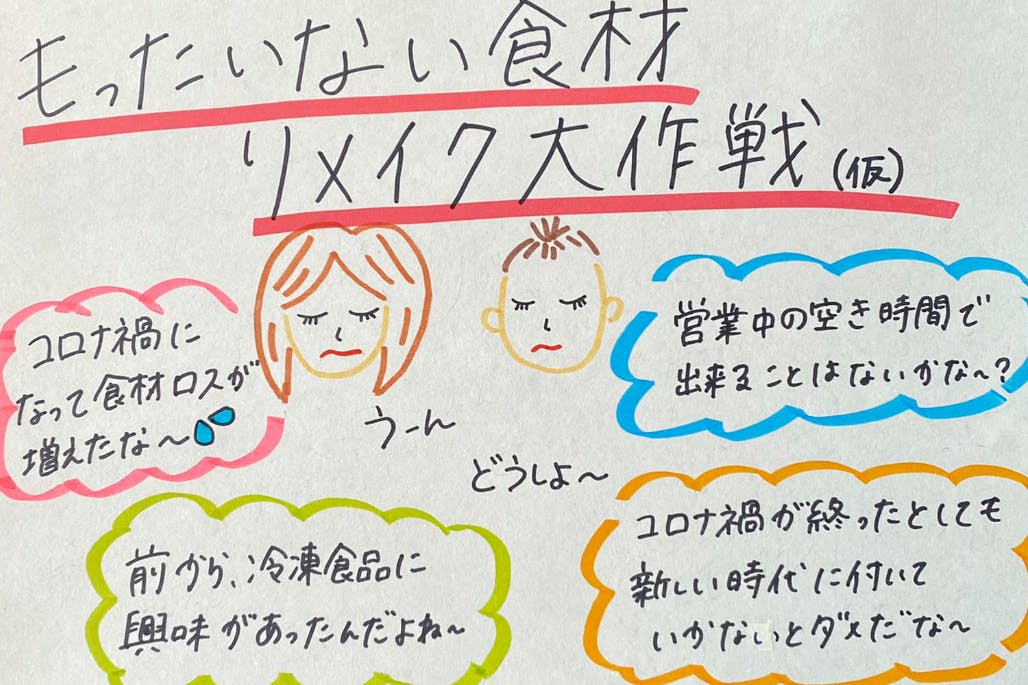 もったいない食材
リメイク大作戦(仮)
コロナ禍に
なって食材ロスが
増えたな〜
営業中の空き時間で
出来ることはないかな〜?
うーん
どうしよ〜
前から、冷凍食品に
興味があったんだよね〜
コロナ禍が終ったとしても
新しい時代に付いて
いかないとダメだな〜